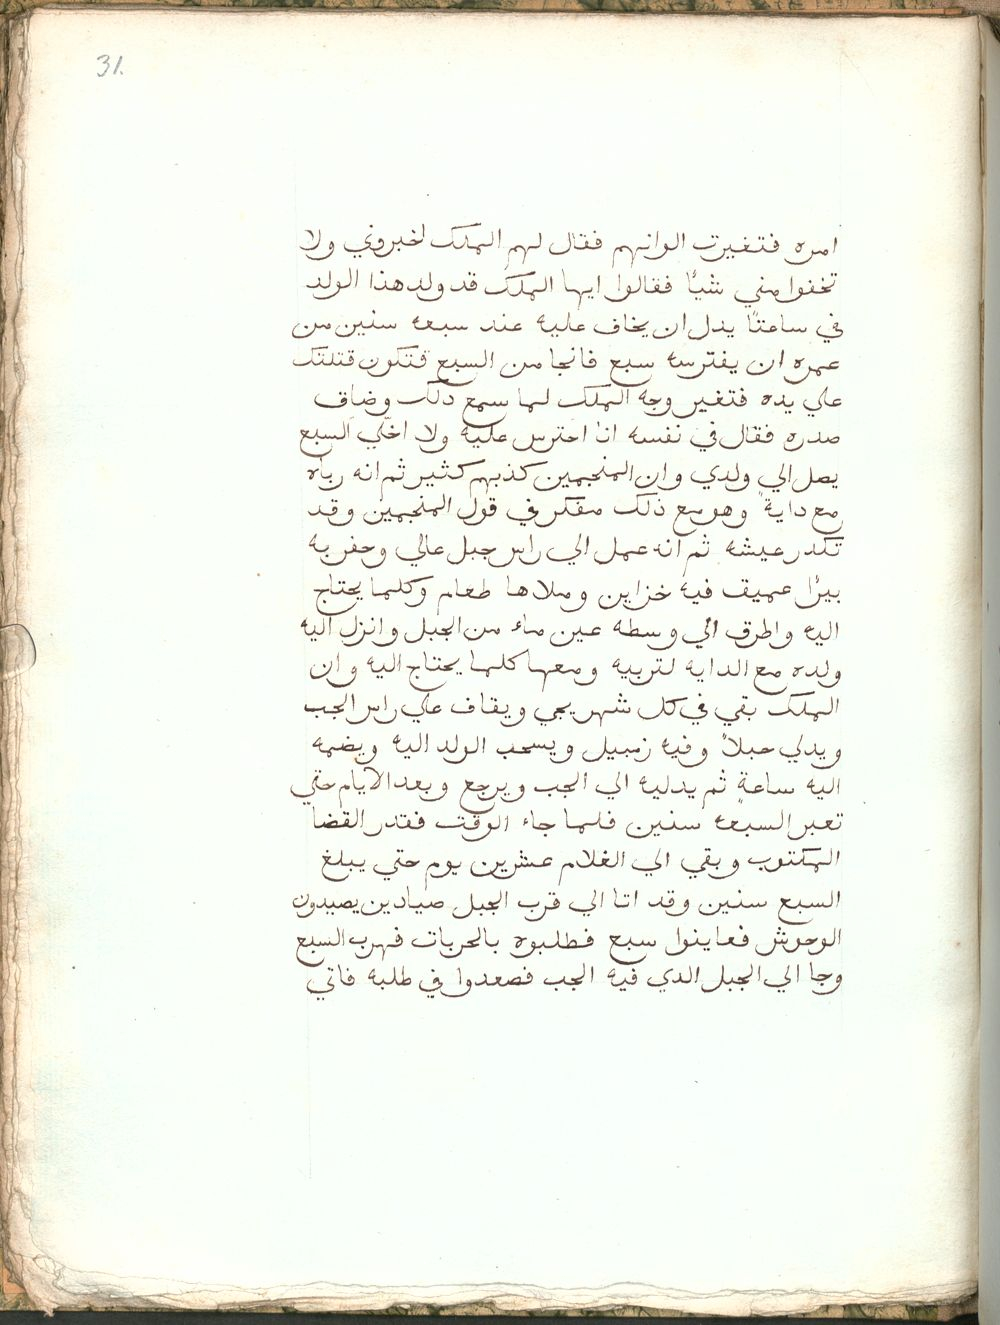 31.
امره فتغيرت الوانهم فقال لهم الملك اخبروني ولا
تخفوا مني شيًا فقالوا ايها الملك قد ولد هذا الولد
في ساعتًا يدل ان يخاف عليه عند سبعه سنين من
عمره ان يفترسه سبع فانجا من السبع فتكون قتلتك
علي يده فتغير وجه الملك لما سمع دلك وضاق
صدره فقال في نفسه انا احترس عليه ولا اخلّي السبع
يصل الي ولدي وان المنجمين كذبهم كثير ثم انه رباه
مع دايةً وهو مع ذلك مفكر في قول المنجمين وقد
تكدر عيشه ثم انه عمل الي راس جبل عالي وحفر به
بيرًا عميق فيه خزاين وملاها طعام وكلما يحتاج
اليه واطرق الي وسطه عين ماء من الجبل وانزل اليه
ولده مع الدايه لتربيه ومعها كلما يحتاج اليه وان
الملك بقي في كل شهر يجي ويقاف علي راس الجب
ويدلي حبلاً وفيه زمبيل ويسحب الولد اليه ويضمه
اليه ساعةٍ ثم يدليه الي الجب ويرجع وبعد الايام حتي
تعبر السبعه سنين فلما جاء الوقت فقدر القضا
المكتوب وبقي الي الغلام عشرين يوم حتي يبلغ
السبع سنين وقد اتا الي قرب الجبل صيادين يصيدون
الوحوش فعاينوا سبع فطلبوه بالحربات فهرب السبع
وجا الي الجبل الدي فيه الجب فصعدوا في طلبه فاتي